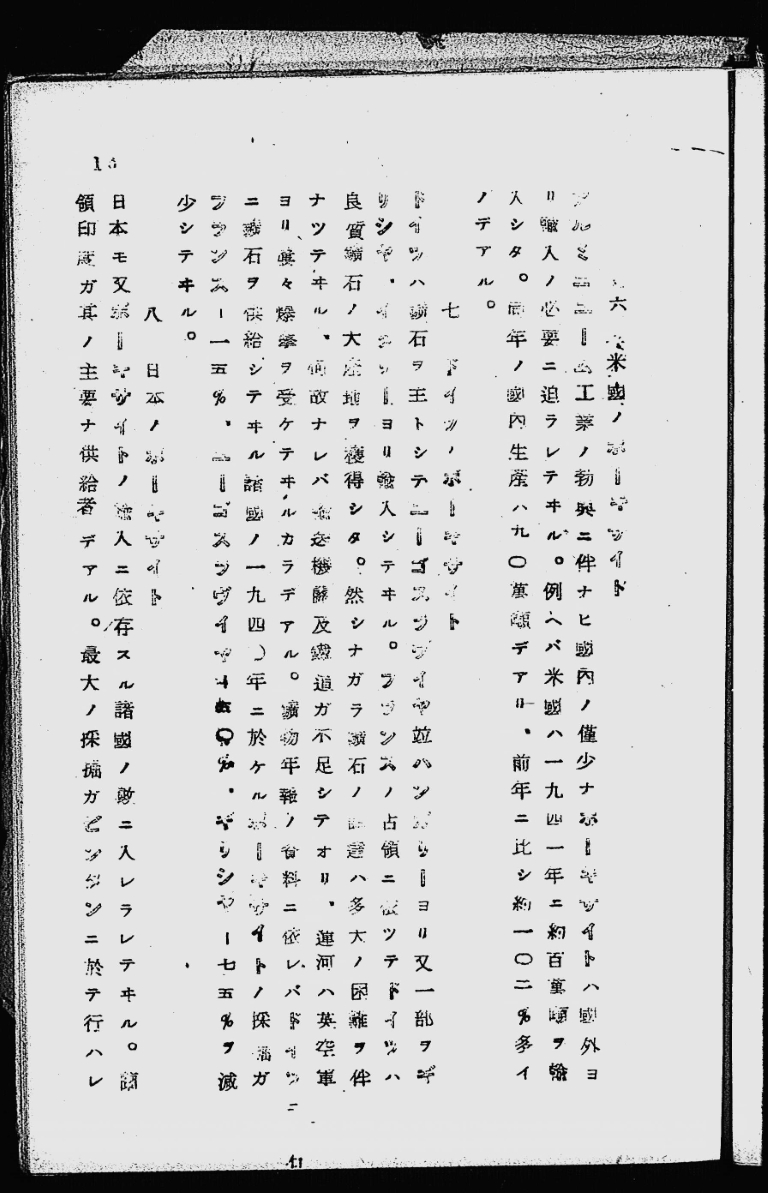 六、米國ノボーキサイト
アルミニユーム工業ノ勃興ニ伴ナヒ國內ノ僅少ナボーキサイトハ國外ヨ
リ輸入ノ必要ニ迫ラレテヰル。例ヘバ米國ハ一九四一年ニ約百萬噸ヲ輸
入シタ。同年ノ國內生産ハ九〇萬噸デアリ、前年ニ比シ約一〇二%多イ
ノデアル。
七 ドイツノボーキサイト
ドイツハ鑛石ヲ主トシテユーゴスラヴイヤ竝ハンガリーヨリ又一部ヲギ
リシヤ、ヨリ輸入シテヰル。フランスノ占領ニ依ツテドイツハ
良質鑛石ノ大産地ヲ獲得シタ。然シナガラ鑛石ノ ハ多大ノ困難ヲ伴
ナツテヰル、何故ナレバ輸送機關及鐵道ガ不足シテオリ、運河ハ英空軍
ヨリ屢々爆擊ヲ受ケテヰルカラデアル。鑛物年報ノ資料ニ依レバドイツニ
ニ鑛石ヲ供給シテヰル諸國ノ一九四〇年ニ於ケルボーキサイトノ採掘ガ
フランスー一五%、ユーゴスラヴイヤー 〇%、ギリシヤー七五%ヲ減
少シテヰル。
八 日本ノボーキサイト
日本モ又ボーキサイトノ輸入ニ依存スル諸國ノ數ニ入レラレテヰル。蘭
領印度ガ其ノ主要ナ供給者デアル。最大ノ採掘ガビンタンニ於テ行ハレ